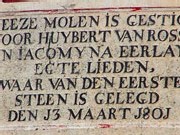 DEEZE MOLEN IS GESTIG
VOOR HUYBERT VAN ROSS
EN IACOMYNA EERLAN
EGTE LIEDEN.
WAAR VAN DEN EERSTE
STEEN IS GELEGD
DEN 13 MAART 1801